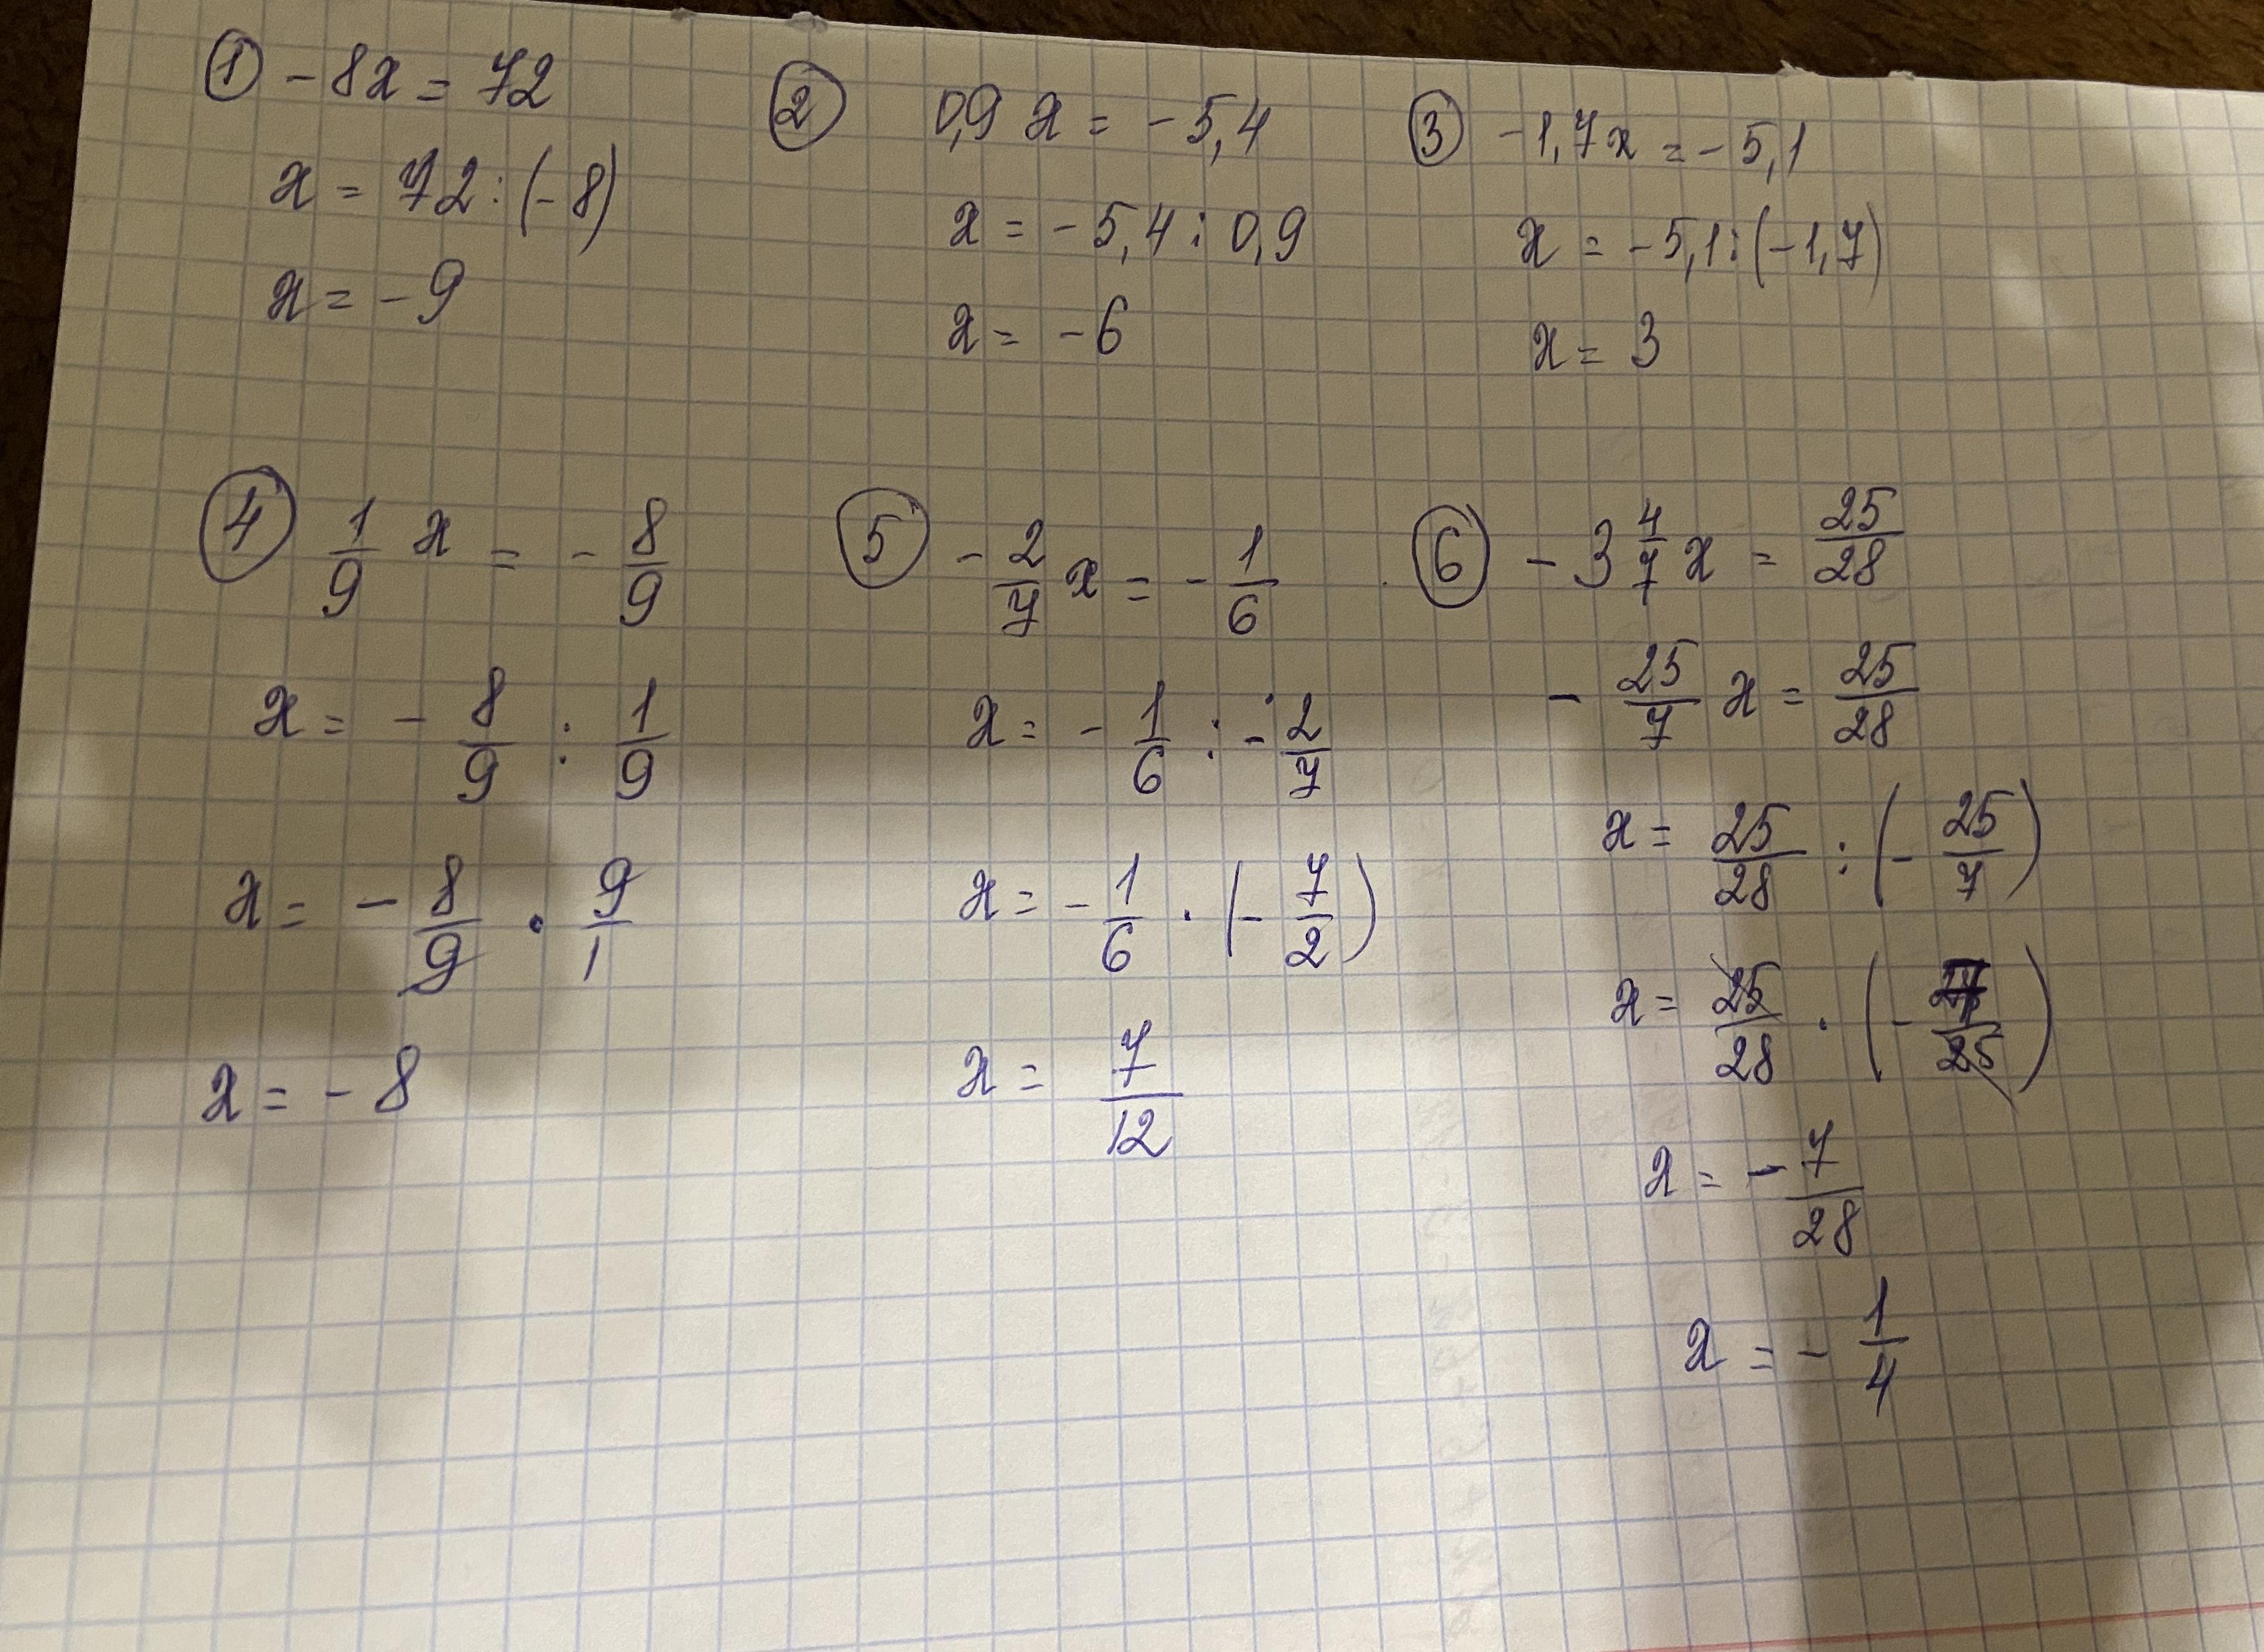 ① -8x = 72
x = 72 : (-8)
x = -9
② 0,9 x = -5,4
x = -5,4 : 0,9
x = -6
③ -1,7x = -5,1
x = -5,1 : (-1,7)
x = 3
④ 1/9 x = - 8/9
x = - 8/9 : 1/9
x = - 8/9 · 9/1
x = -8
⑤ - 2/7 x = - 1/6
x = - 1/6 : - 2/7
x = - 1/6 · (- 7/2)
x = 7/12
⑥ -3 4/7 x = 25/28
- 25/7 x = 25/28
x = 25/28 : (- 25/7)
x = 25/28 · (- 7/25)
x = - 7/28
x = - 1/4